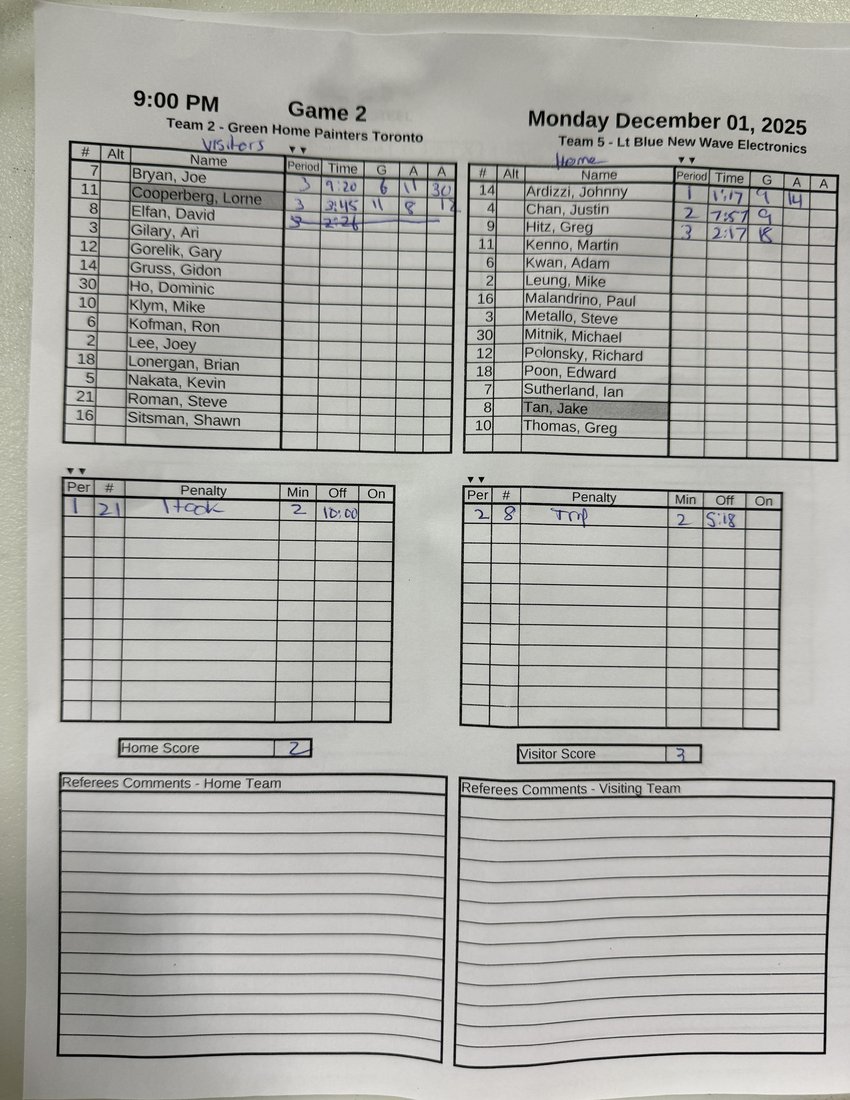 9:00 PM Game 2 Monday December 01, 2025
Team 2 - Green Home Painters Toronto
Team 5 - Lt Blue New Wave Electronics
Visitors
# Alt Name Period Time G A A
7 Bryan, Joe 3 9:20 6 11 30
11 Cooperberg, Lorne 3 3:45 11 8 12
8 Elfan, David 3 2:26
3 Gilary, Ari
12 Gorelik, Gary
14 Gruss, Gidon
30 Ho, Dominic
10 Klym, Mike
6 Kofman, Ron
2 Lee, Joey
18 Lonergan, Brian
5 Nakata, Kevin
21 Roman, Steve
16 Sitsman, Shawn
Home
# Alt Name Period Time G A A
14 Ardizzi, Johnny 1 1:17 9 14
4 Chan, Justin 2 7:57 9
9 Hitz, Greg 3 2:17 18
11 Kenno, Martin
6 Kwan, Adam
2 Leung, Mike
16 Malandrino, Paul
3 Metallo, Steve
30 Mitnik, Michael
12 Polonsky, Richard
18 Poon, Edward
7 Sutherland, Ian
8 Tan, Jake
10 Thomas, Greg
Per # Penalty Min Off On
1 21 Hook 2 10:00
Per # Penalty Min Off On
2 8 Trip 2 5:18
Home Score 2
Visitor Score 3
Referees Comments - Home Team
Referees Comments - Visiting Team